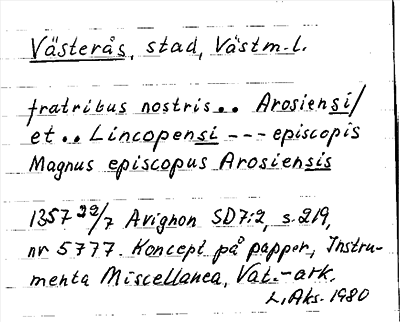 Västerås, stad, Västm.l.
fratribus nostris.. Arosiensi/
et.. Lincopensi --- episcopis
Magnus episcopus Arosiensis
1357 29/7 Avignon SD7:2, s.219,
nr 5777. Koncept på papper, Instru-
menta Miscellanea, Vat.-ark.
L. Aks. 1980